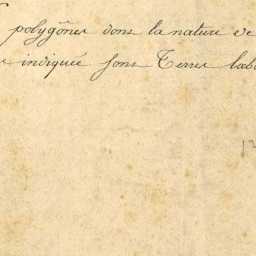 polygônes dont la nature de
indiquée sont Terres labo